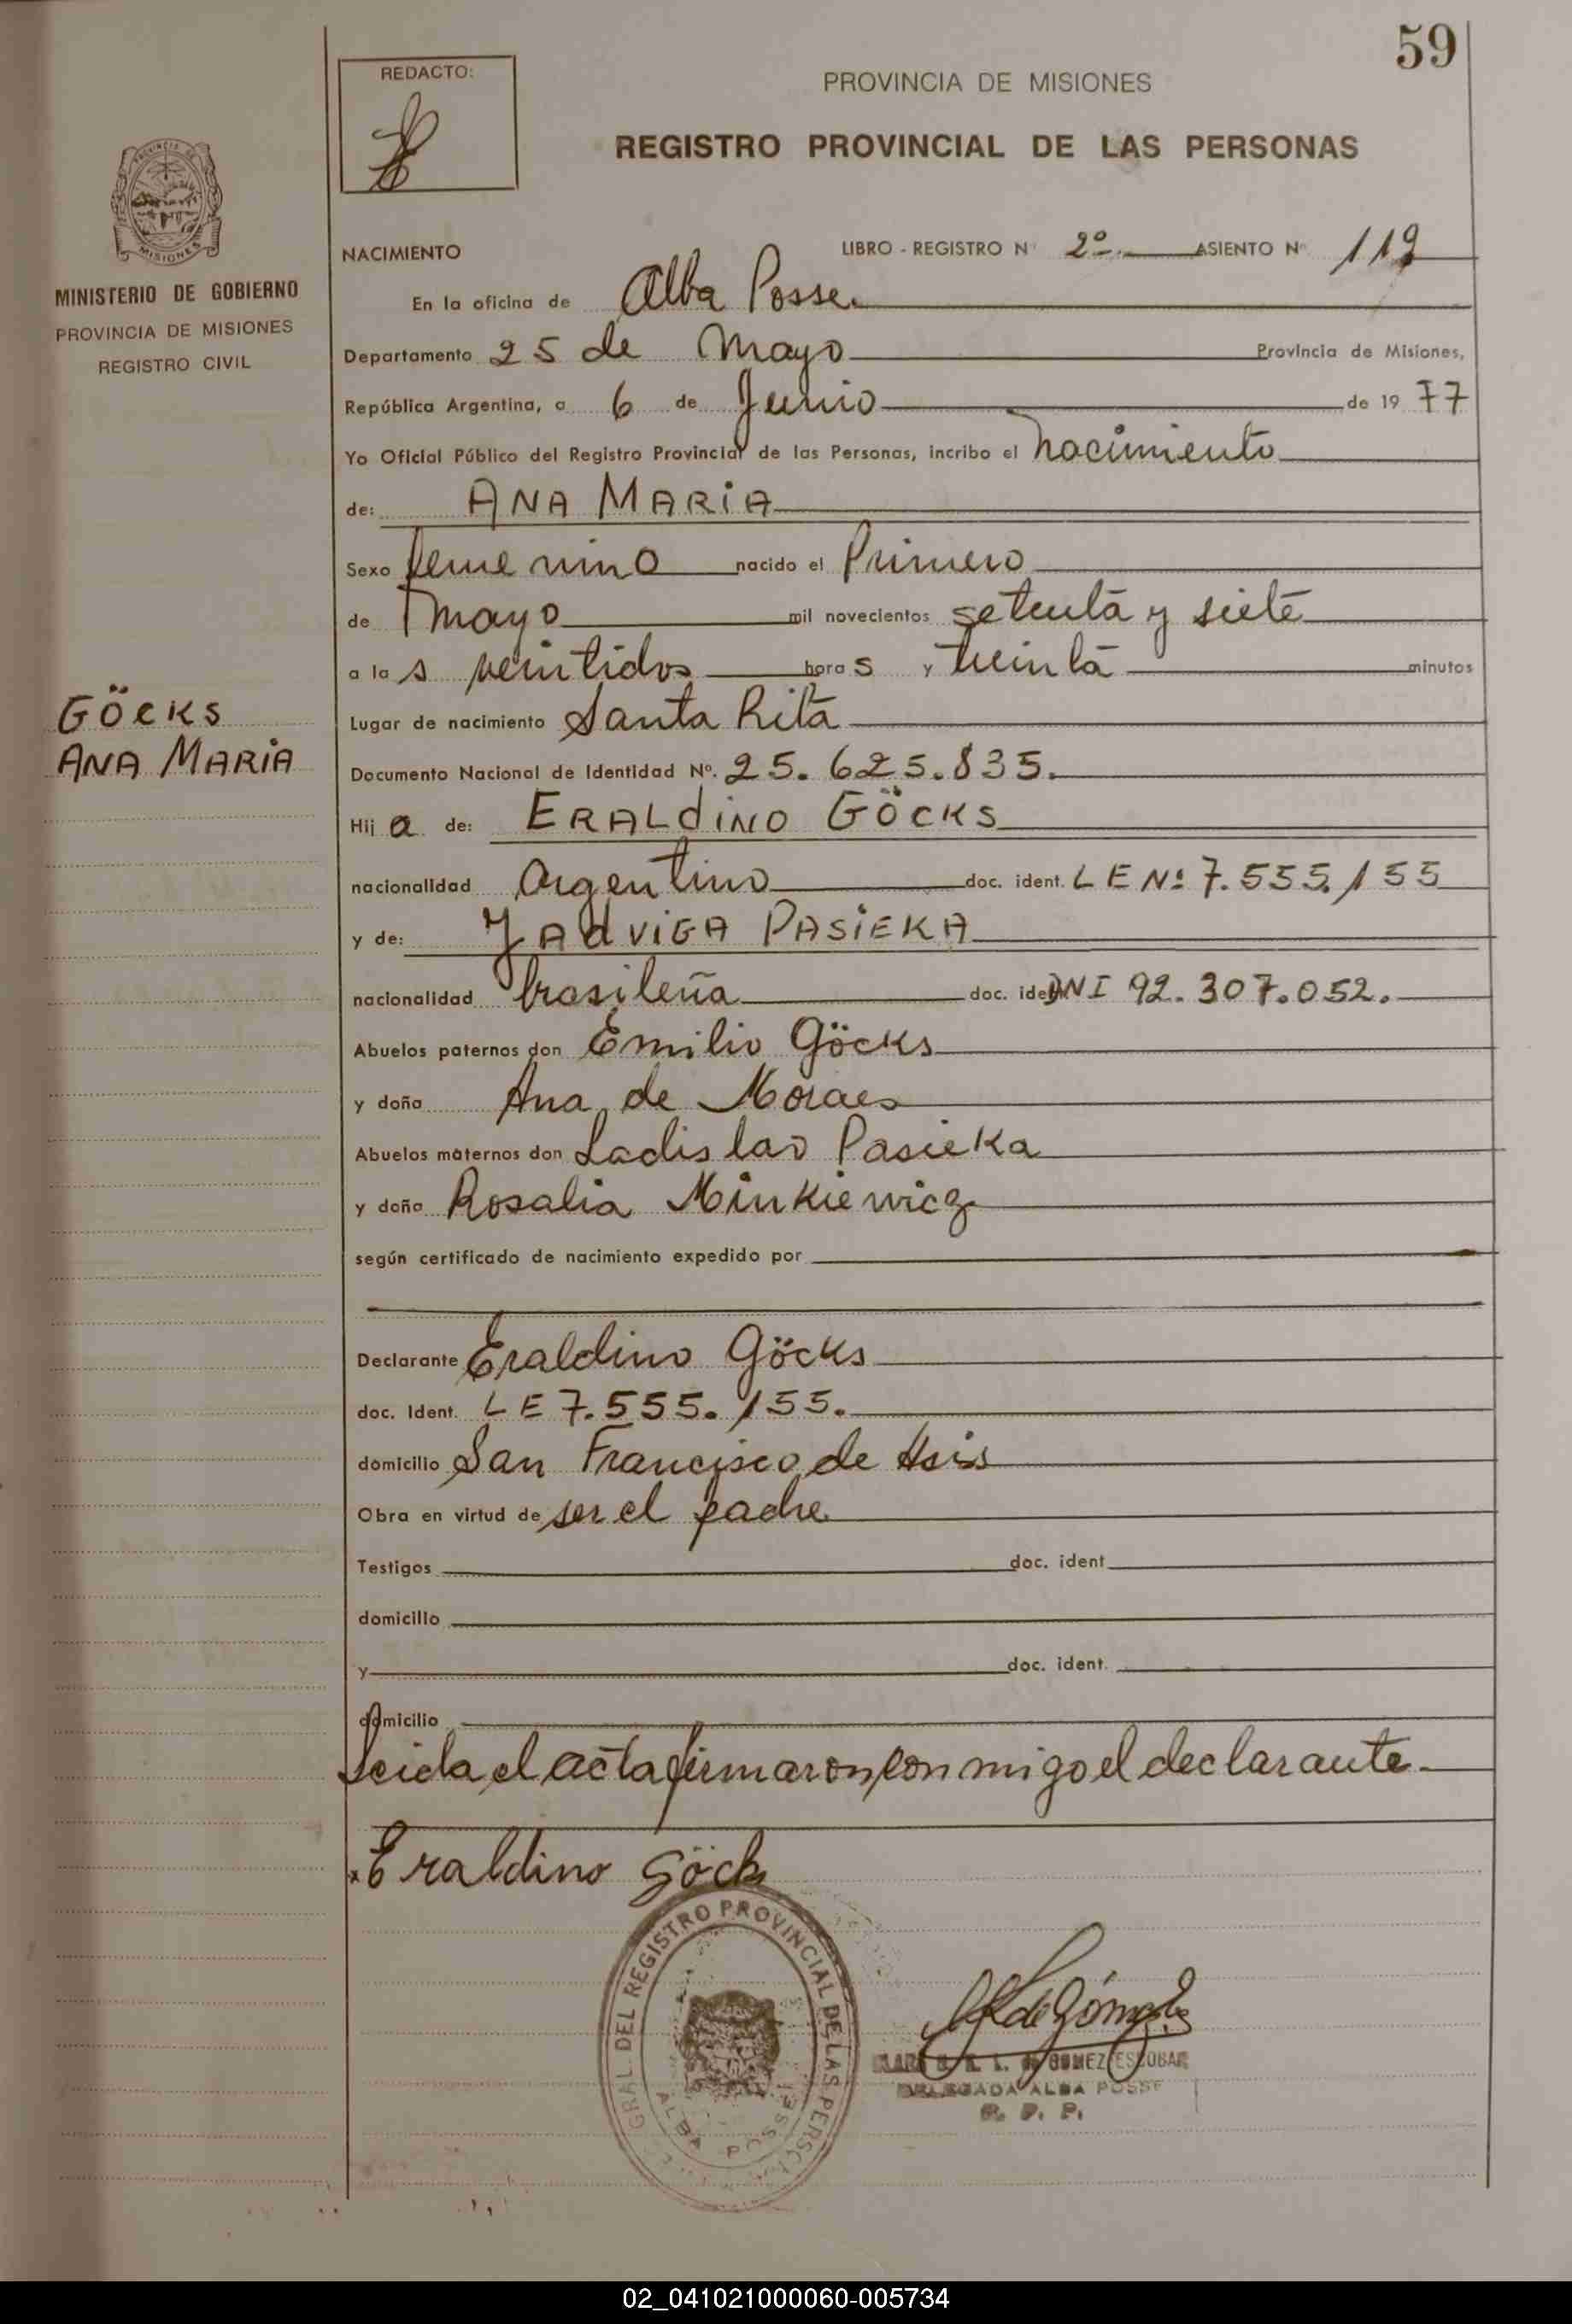 59
REDACTO:
PROVINCIA DE MISIONES
REGISTRO PROVINCIAL DE LAS PERSONAS
MISIONES
MINISTERIO DE GOBIERNO
PROVINCIA DE MISIONES
REGISTRO CIVIL
NACIMIENTO LIBRO - REGISTRO Nº 2º ASIENTO Nº 119
En la oficina de Alba Posse.
Departamento 25 de Mayo Provincia de Misiones,
República Argentina, a 6 de Junio de 1977
Yo Oficial Público del Registro Provincial de las Personas, incribo el nacimiento
de: ANA MARIA
Sexo femenino nacido el Primero
de mayo mil novecientos setenta y siete
a las veintidos horas y treinta minutos
GÖCKS
ANA MARIA
Lugar de nacimiento Santa Rita
Documento Nacional de Identidad Nº. 25.625.835.
Hija de: ERALDINO GÖCKS
nacionalidad Argentino doc. ident. LE Nº 7.555.155
y de: JADVIGA PASIEKA
nacionalidad brasileña doc. ident. DNI 92.307.052.
Abuelos paternos don Emilio Göcks
y doña Ana de Moraes
Abuelos maternos don Ladislao Pasieka
y doña Rosalia Minkiewicz
según certificado de nacimiento expedido por
Declarante Eraldino Göcks
doc. Ident. LE 7.555.155.
domicilio San Francisco de Asis
Obra en virtud de ser el padre
Testigos doc. ident
domicilio
y doc. ident.
domicilio
Leida el acta firmaron conmigo el declarante
x Eraldino Göcks
GRAL. DEL REGISTRO PROVINCIAL DE LAS PERSONAS
ALBA POSSE
de GOMEZ ESCOBAR
DELEGADA ALBA POSSE
R. P. P.
02_041021000060-005734